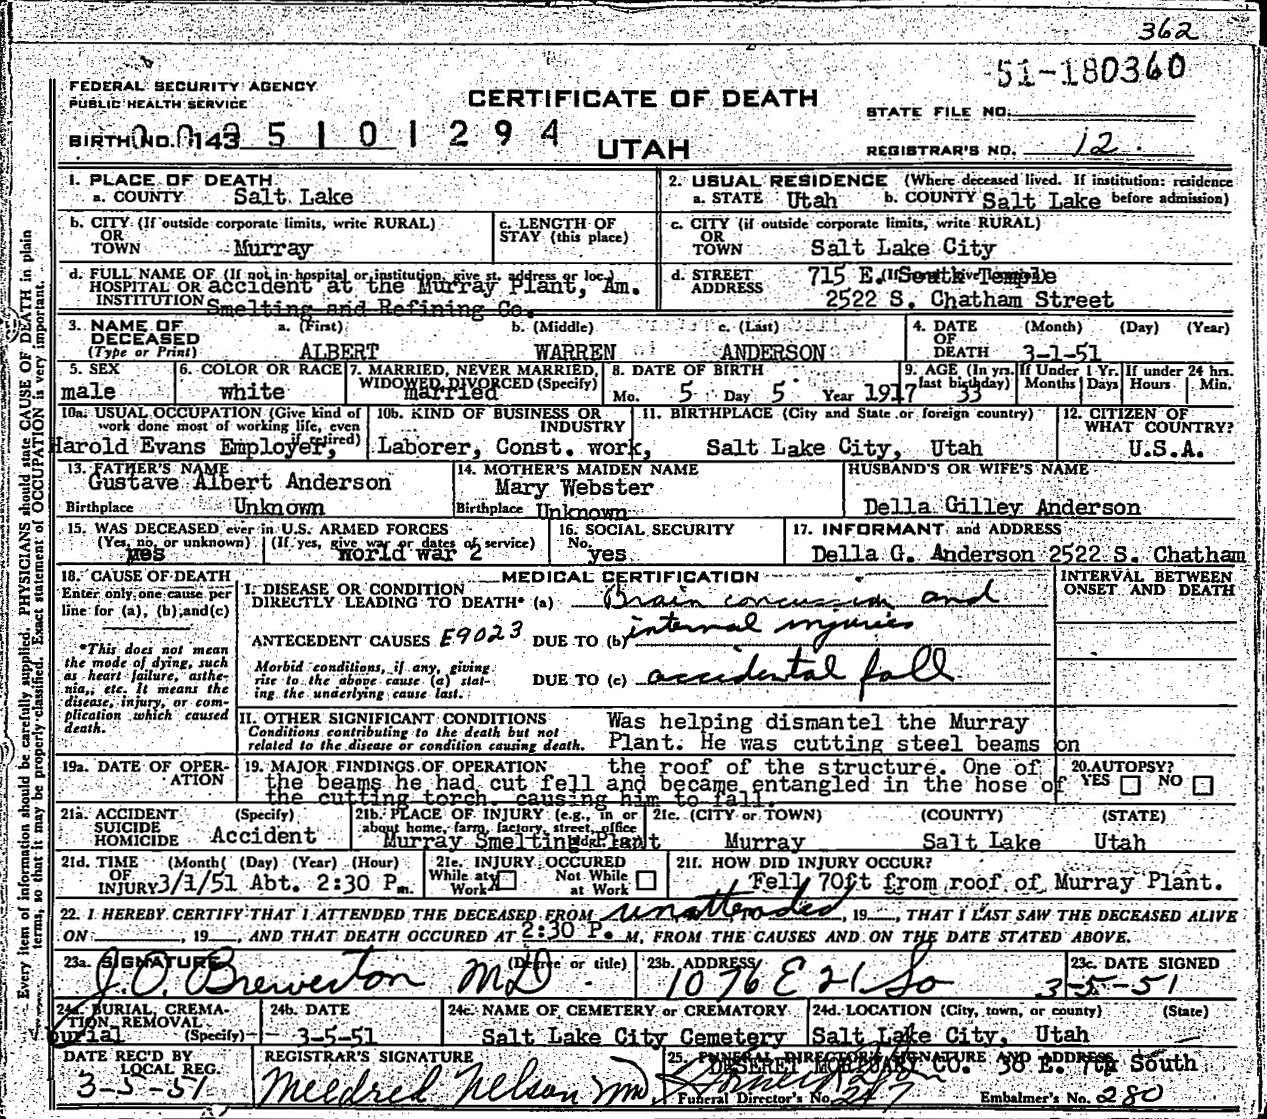 362
51-180360
FEDERAL SECURITY AGENCY
PUBLIC HEALTH SERVICE
CERTIFICATE OF DEATH
STATE FILE NO.
BIRTH NO. 143 5 1 0 1 2 9 4
UTAH
REGISTRAR'S NO. 12.
1. PLACE OF DEATH
a. COUNTY Salt Lake
2. USUAL RESIDENCE (Where deceased lived. If institution: residence before admission)
a. STATE Utah b. COUNTY Salt Lake
b. CITY (If outside corporate limits, write RURAL) OR TOWN Murray
c. LENGTH OF STAY (this place)
c. CITY (if outside corporate limits, write RURAL) OR TOWN Salt Lake City
d. FULL NAME OF (If not in hospital or institution, give st. address or loc.)
HOSPITAL OR INSTITUTION accident at the Murray Plant, Am.
Smelting and Refining Co.
d. STREET ADDRESS 715 E. South Temple
2522 S. Chatham Street
3. NAME OF DECEASED (Type or Print)
a. (First) b. (Middle) c. (Last)
ALBERT WARREN ANDERSON
4. DATE OF DEATH (Month) (Day) (Year)
3-1-51
5. SEX male
6. COLOR OR RACE white
7. MARRIED, NEVER MARRIED, WIDOWED, DIVORCED (Specify) married
8. DATE OF BIRTH
Mo. 5 Day 5 Year 1917
9. AGE (In yrs. last birthday) 33
If Under 1 Yr. Months Days
If under 24 hrs. Hours Min.
10a. USUAL OCCUPATION (Give kind of work done most of working life, even if retired)
Harold Evans Employer,
10b. KIND OF BUSINESS OR INDUSTRY
Laborer, Const. work,
11. BIRTHPLACE (City and State or foreign country)
Salt Lake City, Utah
12. CITIZEN OF WHAT COUNTRY?
U.S.A.
13. FATHER'S NAME
Gustave Albert Anderson
Birthplace Unknown
14. MOTHER'S MAIDEN NAME
Mary Webster
Birthplace Unknown
HUSBAND'S OR WIFE'S NAME
Della Gilley Anderson
15. WAS DECEASED ever in U.S. ARMED FORCES
(Yes, no, or unknown) (If yes, give war or dates of service)
yes world war 2
16. SOCIAL SECURITY No. yes
17. INFORMANT and ADDRESS
Della G. Anderson 2522 S. Chatham
18. CAUSE OF DEATH
Enter only one cause per line for (a), (b), and (c)
*This does not mean the mode of dying, such as heart failure, asthenia, etc. It means the disease, injury, or complication which caused death.
MEDICAL CERTIFICATION
I. DISEASE OR CONDITION DIRECTLY LEADING TO DEATH* (a) Brain concussion and
ANTECEDENT CAUSES E9023 DUE TO (b) internal injuries
Morbid conditions, if any, giving rise to the above cause (a) stating the underlying cause last.
DUE TO (c) accidental fall
INTERVAL BETWEEN ONSET AND DEATH
II. OTHER SIGNIFICANT CONDITIONS
Conditions contributing to the death but not related to the disease or condition causing death.
Was helping dismantel the Murray
Plant. He was cutting steel beams on
19a. DATE OF OPERATION
19. MAJOR FINDINGS OF OPERATION the roof of the structure. One of
the beams he had cut fell and became entangled in the hose of
the cutting torch. causing him to fall.
20. AUTOPSY?
YES NO
21a. ACCIDENT SUICIDE HOMICIDE (Specify) Accident
21b. PLACE OF INJURY (e.g., in or about home, farm, factory, street, office bldg.)
Murray Smelting Plant
21c. (CITY or TOWN) (COUNTY) (STATE)
Murray Salt Lake Utah
21d. TIME OF INJURY (Month) (Day) (Year) (Hour)
3/1/51 Abt. 2:30 P m.
21e. INJURY OCCURED
While at Work X Not While at Work
21f. HOW DID INJURY OCCUR?
Fell 70ft from roof of Murray Plant.
22. I HEREBY CERTIFY THAT I ATTENDED THE DECEASED FROM unattended, 19__, THAT I LAST SAW THE DECEASED ALIVE
ON ______, 19__, AND THAT DEATH OCCURED AT 2:30 P. M, FROM THE CAUSES AND ON THE DATE STATED ABOVE.
23a. SIGNATURE (Degree or title)
J.O. Brewerton MD.
23b. ADDRESS
1076 E 21 So
23c. DATE SIGNED
3-5-51
24a. BURIAL, CREMATION, REMOVAL (Specify)
burial
24b. DATE
3-5-51
24c. NAME OF CEMETERY or CREMATORY
Salt Lake City Cemetery
24d. LOCATION (City, town, or county) (State)
Salt Lake City, Utah
DATE REC'D BY LOCAL REG.
3-5-51
REGISTRAR'S SIGNATURE
Mildred Nelson MD
25. FUNERAL DIRECTOR'S SIGNATURE AND ADDRESS
DESERET MORTUARY CO. 36 E. 7th South
Funeral Director's No. 247
Embalmer's No. 280
Every item of information should be carefully supplied. PHYSICIANS should state CAUSE OF DEATH in plain
terms, so that it may be properly classified. Exact statement of OCCUPATION is very important.